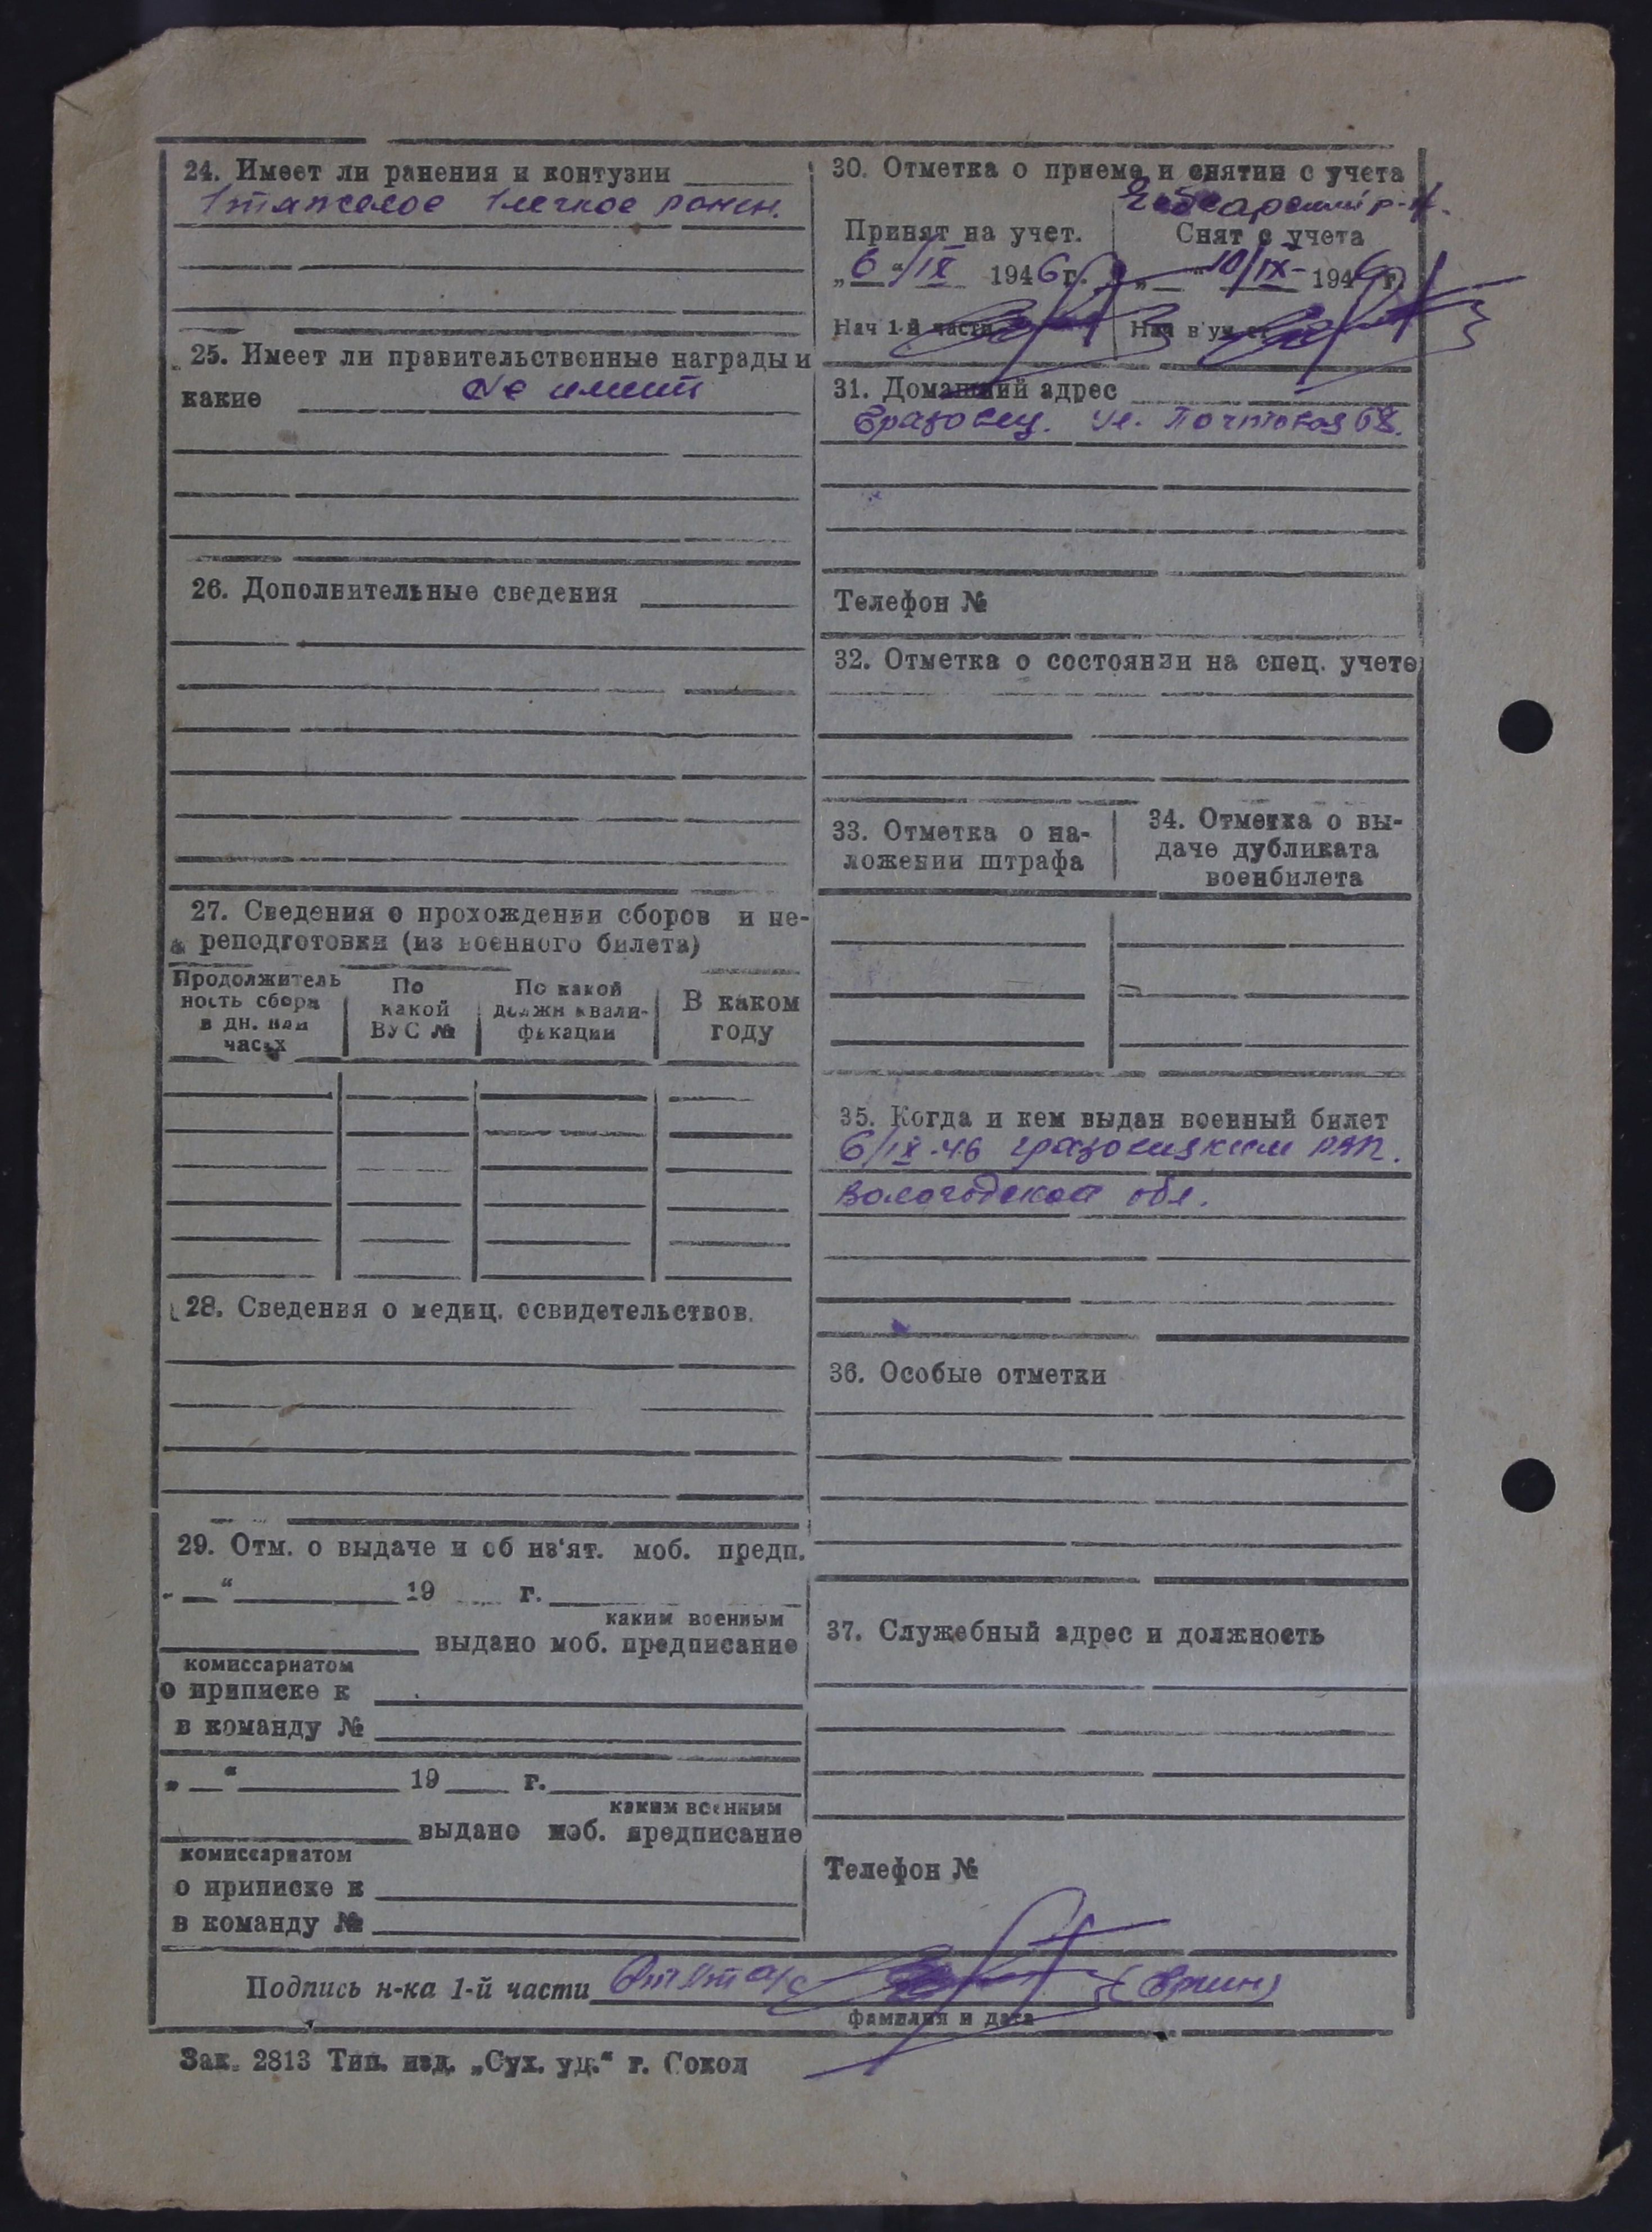 24. Имеет ли ранения и контузии
1 тяжелое 1 легкое ранен.
25. Имеет ли правительственные награды и
какие Не имеет
26. Дополнительные сведения
27. Сведения о прохождении сборов и пе-
реподготовки (из военного билета)
Продолжитель
ность сбора
в дн. или
часах
По
какой
ВУС №
По какой
должн квали-
фикации
В каком
году
28. Сведения о медиц. освидетельствов.
29. Отм. о выдаче и об из'ят. моб. предп.
„ “ 19 г.
каким военным
выдано моб. предписание
комиссариатом
о приписке к
в команду №
„ “ 19 г.
каким военным
выдано моб. предписание
комиссариатом
о приписке к
в команду №
30. Отметка о приеме и снятии с учета
р-н.
Принят на учет.
„6“/IX 1946 г.
Нач 1-й части
Снят с учета
„ “ 10/IX- 1946 г.
Нач в'уч ст
31. Домашний адрес
Грязовец. ул. Почтовая 68.
Телефон №
32. Отметка о состоянии на спец. учете
33. Отметка о на-
ложении штрафа
34. Отметка о вы-
даче дубликата
военбилета
35. Когда и кем выдан военный билет
6/IX-46 Грязовецким РВК.
Вологодской обл.
36. Особые отметки
37. Служебный адрес и должность
Телефон №
Подпись н-ка 1-й части
фамилия и дата
Зак. 2813 Тип. изд. „Сух. уд.“ г. Сокол